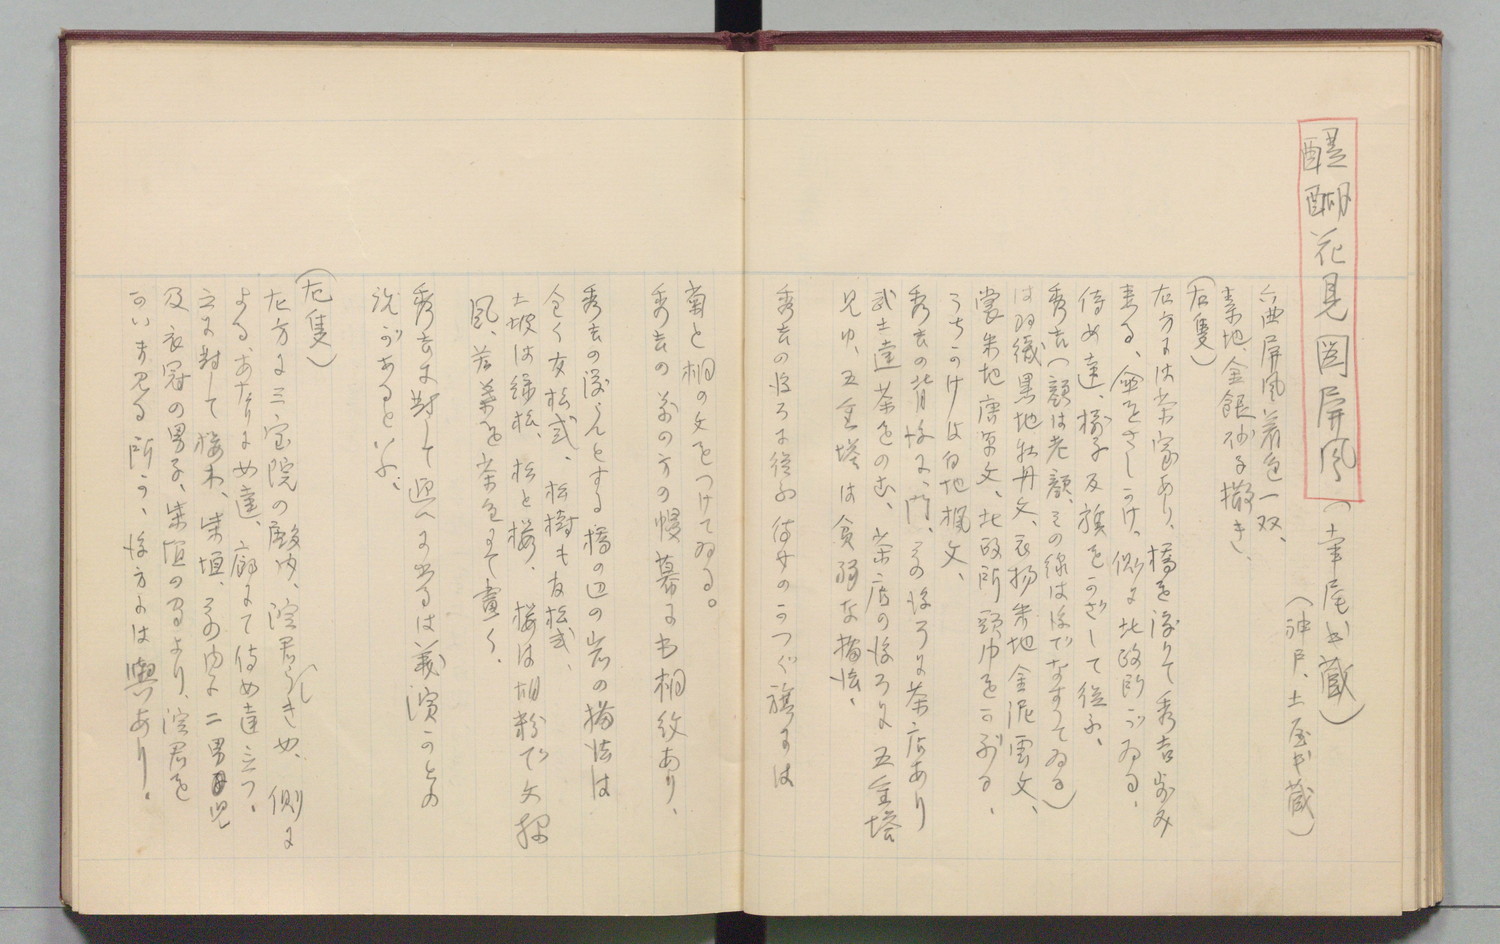 醍醐花見図屏風(幸尾氏蔵)
(神戸、土屋氏蔵)
六曲屏風着色一双、
素地、金銀砂子撒き、
(右隻)
右方には茶家あり、橋を渡りて秀吉歩み
来る、傘をさしかけ、側に北政所がゐる、
侍め達、梯子及旗をかざして従ふ、
秀吉(顔は老顔、その線は後でなすつてゐる)
は羽織黒地牡丹文、衣物朱地金泥雲文、
裳朱地唐草文、北政所頭巾をかぶる、
うちかけは白地楓文、
秀吉の背後に、門、その後ろに茶店あり
武士達茶をのむ、茶店の後ろに五重塔
見ゆ、五重塔は貧弱な描法、
秀吉の後ろに従ふ侍女のかつぐ旗には
菊と桐の文をつけてゐる。
秀吉の前の方の幔幕にも桐紋あり、
秀吉の渡らんとする橋の辺の岩の描法は
全く友松式、松樹も友松式、
土坡は緑松、松と桜、桜は胡粉で大形
風、若葉を茶色にて画く、
秀吉に対して迎へに出るは義演かとの
説があるといふ、
(左隻)
左方に三宝院の殿内、淀君らしきめ、側に
よる、あたりにめ達、廊にて侍め達立つ。
之に対して桜木、柴垣、その内に二男児
及衣冠の男子、柴垣の間より、淀君を
かいま見る所か、後方には輿あり。